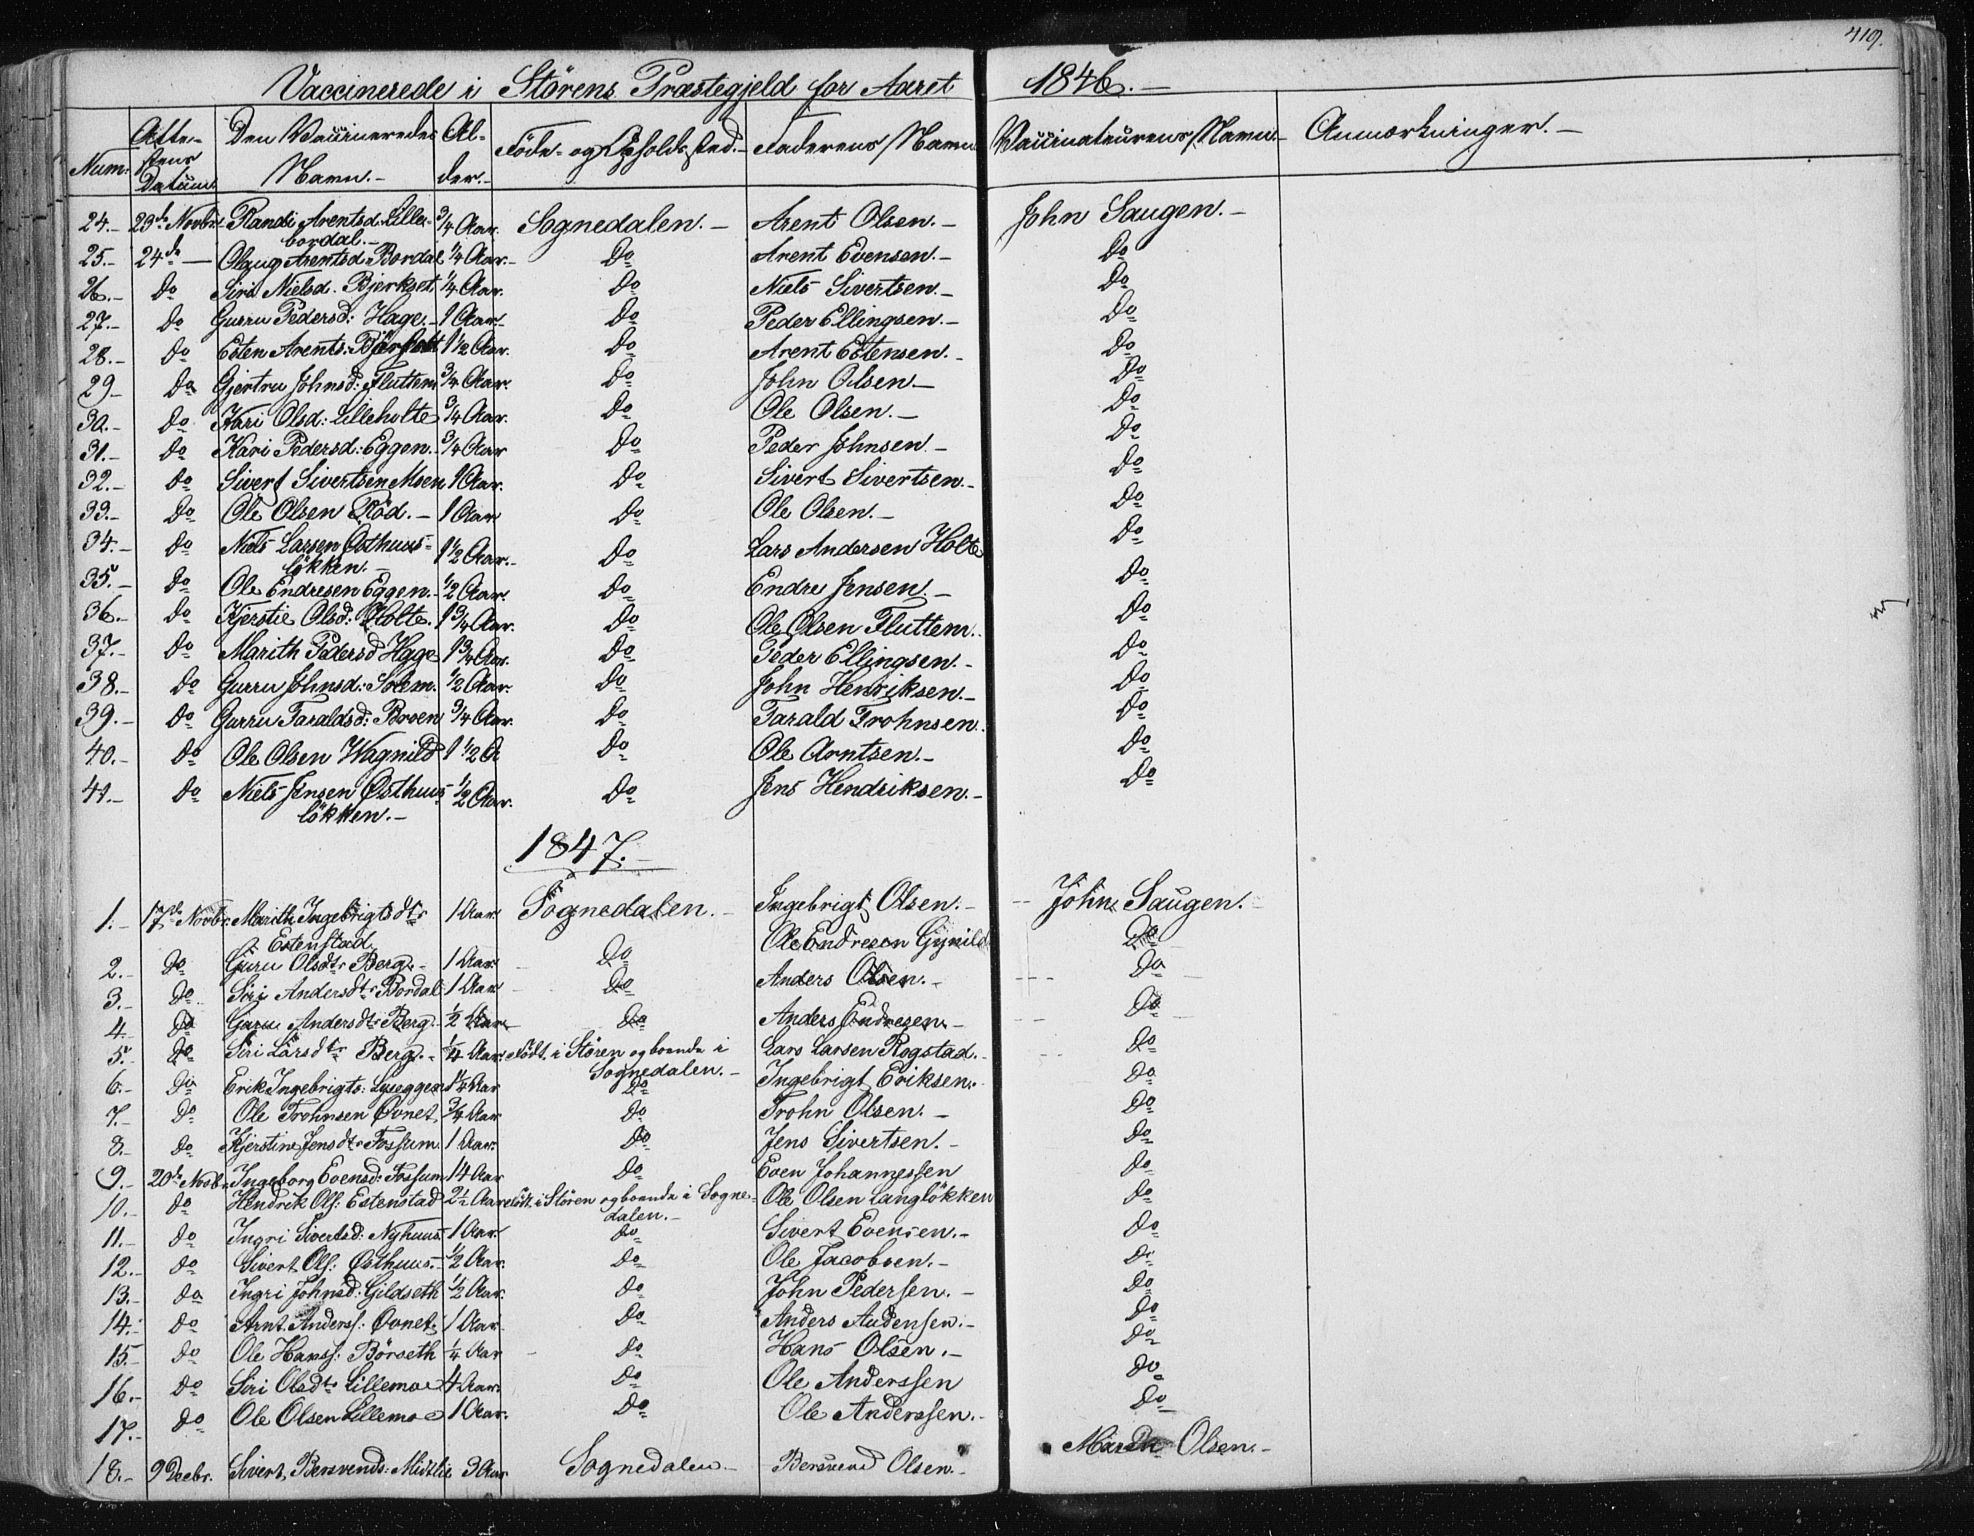 419.
Vaccinerede i Störens Præstegjeld for Aaret 1846. –
Num. Atte-stens Datum. Den Vaccineredes Navn. – Al-der. – Föde- og Opholdssted. – Faderens Navn Vaccinateurens Navn. – Anmærkninger. –
24. – 23de Novbr. Randi Arentsd. Lille- 3/4 Aar. Sognedalen. – Arent Olsen. – John Saugen. –
bordal. –
25. – 24de — Olaug Arentsd. Bordal 1/4 Aar. – Do Arent Evensen. – Do
26. – Do Siri Nielsd. Bjerkset 1/4 Aar. Do Niels Sivertsen. – Do
27. – Do Gurru Pedersd: Hage. – 1 Aar. – Do Peder Ellingsen. – Do
28. – Do Esten Arents: 1 1/2 Aar. Do Arent Estensen. – Do
29 – Do Gjertru Johnsd: Fluttem 3/4 Aar. Do John Olsen. – Do
30. – Do Kari Olsd: Lilleholte 3/4 Aar. Do Ole Olsen. – Do
31. – Do Kari Pedersd: Eggen. – 3/4 Aar Do Peder Johnsen. – Do
32. – Do Sivert Sivertsen Moen 1 Aar. Do Sivert Sivertsen. – Do
33. – Do Ole Olsen Röd. – 1 Aar Do Ole Olsen. – Do
34. – Do Niels Larsen Østhuus- 1 1/2 Aar. – Do Lars Andersen Holte Do
lökken. –
35. – Do Ole Endresen Eggen. – 1/2 Aar. Do Endre Jensen. – Do
36. – Do Kjerstie Olsd: Holte. 1 3/4 Aar. Do Ole Olsen Fluttem. Do
37. – Do Marith Pedersd Hage 1 3/4 Aar. Do Peder Ellingsen. – Do
38. – Do Gurru Johnsd: Solem. 1/2 Aar. Do John Henriksen. – Do
39. – Do Gurru Taraldsd: Broen 3/4 Aar. Do Tarald Trohnsen. Do
40. – Do Ole Olsen Wagnild 1 1/2 A Do Ole Arntsen. – Do
41. – Do Niels Jensen Østhuus- 1/2 Aar. Do Jens Hendriksen. – Do
lökken. –
1847. –
1. – 17de Novbr. Marith Ingebrigtsdtr 1 Aar Sognedalen. – Ingebrigt Olsen. – John Saugen.
Estenstad
2. – Do Guru Olsdtr Berg. – 1 Aar. Do Ole Endresen Gynild Do
3. – Do Siri Andersdtr Bordal 1 Aar Do Anders Olsen. – Do
4. – Do Guru Andersdtr Berg. 1/2 Aar. Do Anders Endresen. – Do
5. – Do Siri Larsdtr Berg. – 1/4 Aar. Födt i Stören og boende i Lars Larsen Rogstad. Do
Sognedalen. –
6. – Do Erik Ingebrigts: 1/4 Aar Do Ingebrigt Eriksen. Do
7. – Do Ole Trohnsen Øvnet 3/4 Aar Do Trohn Olsen. – Do
8. – Do Kjerstine Jensdtr Fossum 1 Aar. Do Jens Sivertsen. – Do
9. – 20de Novbr. Ingeborg Evensd: Fossum 14 Aar Do Even Johannessen Do
10. – Do Hendrik Ols: Estenstad 2 1/2 Aar Födt i Stören og boende i Sogne- Ole Olsen Langlökken Do
dalen. –
11. – Do Ingri Sivertsd: Nyhuus 1 Aar. Do Sivert Evensen. – Do
12. – Do Sivert Ols: Østhuus. – 1/2 Aar. Do Ole Jacobsen. – Do
13. – Do Ingri Johnsd: Gildseth 1/2 Aar. Do John Pedersen. – Do
14. – Do Arnt Anders: Øvnet. 1 Aar Do Anders Andersen. – Do
15. – Do Ole Hanss: Börseth 1/4 Aar Do Hans Olsen. – Do
16. – Do Siri Olsdtr Lillemoe 4 Aar. Do Ole Anderssen Do
17. – Do Ole Olsen Lillemoe 1 Aar. Do Ole Anderssen. – Do
18. – 9 Decbr. Sivert Bersvends: Midtlie 3 Aar Sognedalen. – Bersvend Olsen. – Olsen. –